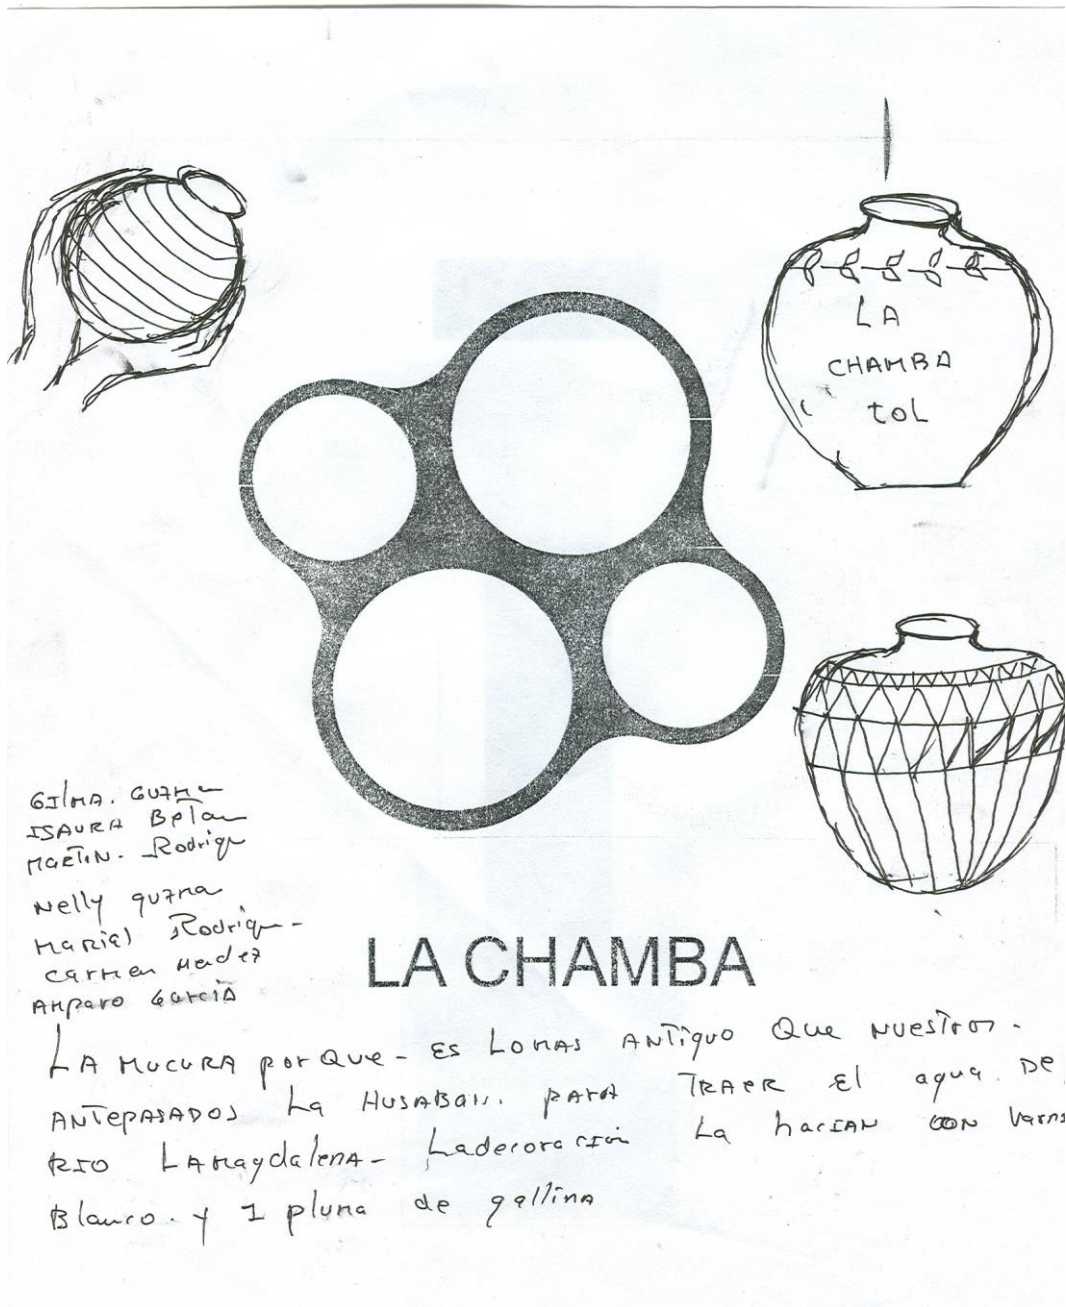 LA
CHAMBA
toL
GILMA. GUZMa
ISAURA Beltan
MARTIN. Rodrigu
Nelly guzma
MARIA) Rodrigu-
Carmen Mendez
AMparo GarciA
LA CHAMBA
LA MUCURA porQue- ES LOMAS ANTiguo Que NUESTROS.
ANTepASADOS La HUSABAN. pArA TRAER El agua. DE
RIO LAMagdalena- Ladecoración La hacIAN CON
Blanco. y 1 pluma de gallina